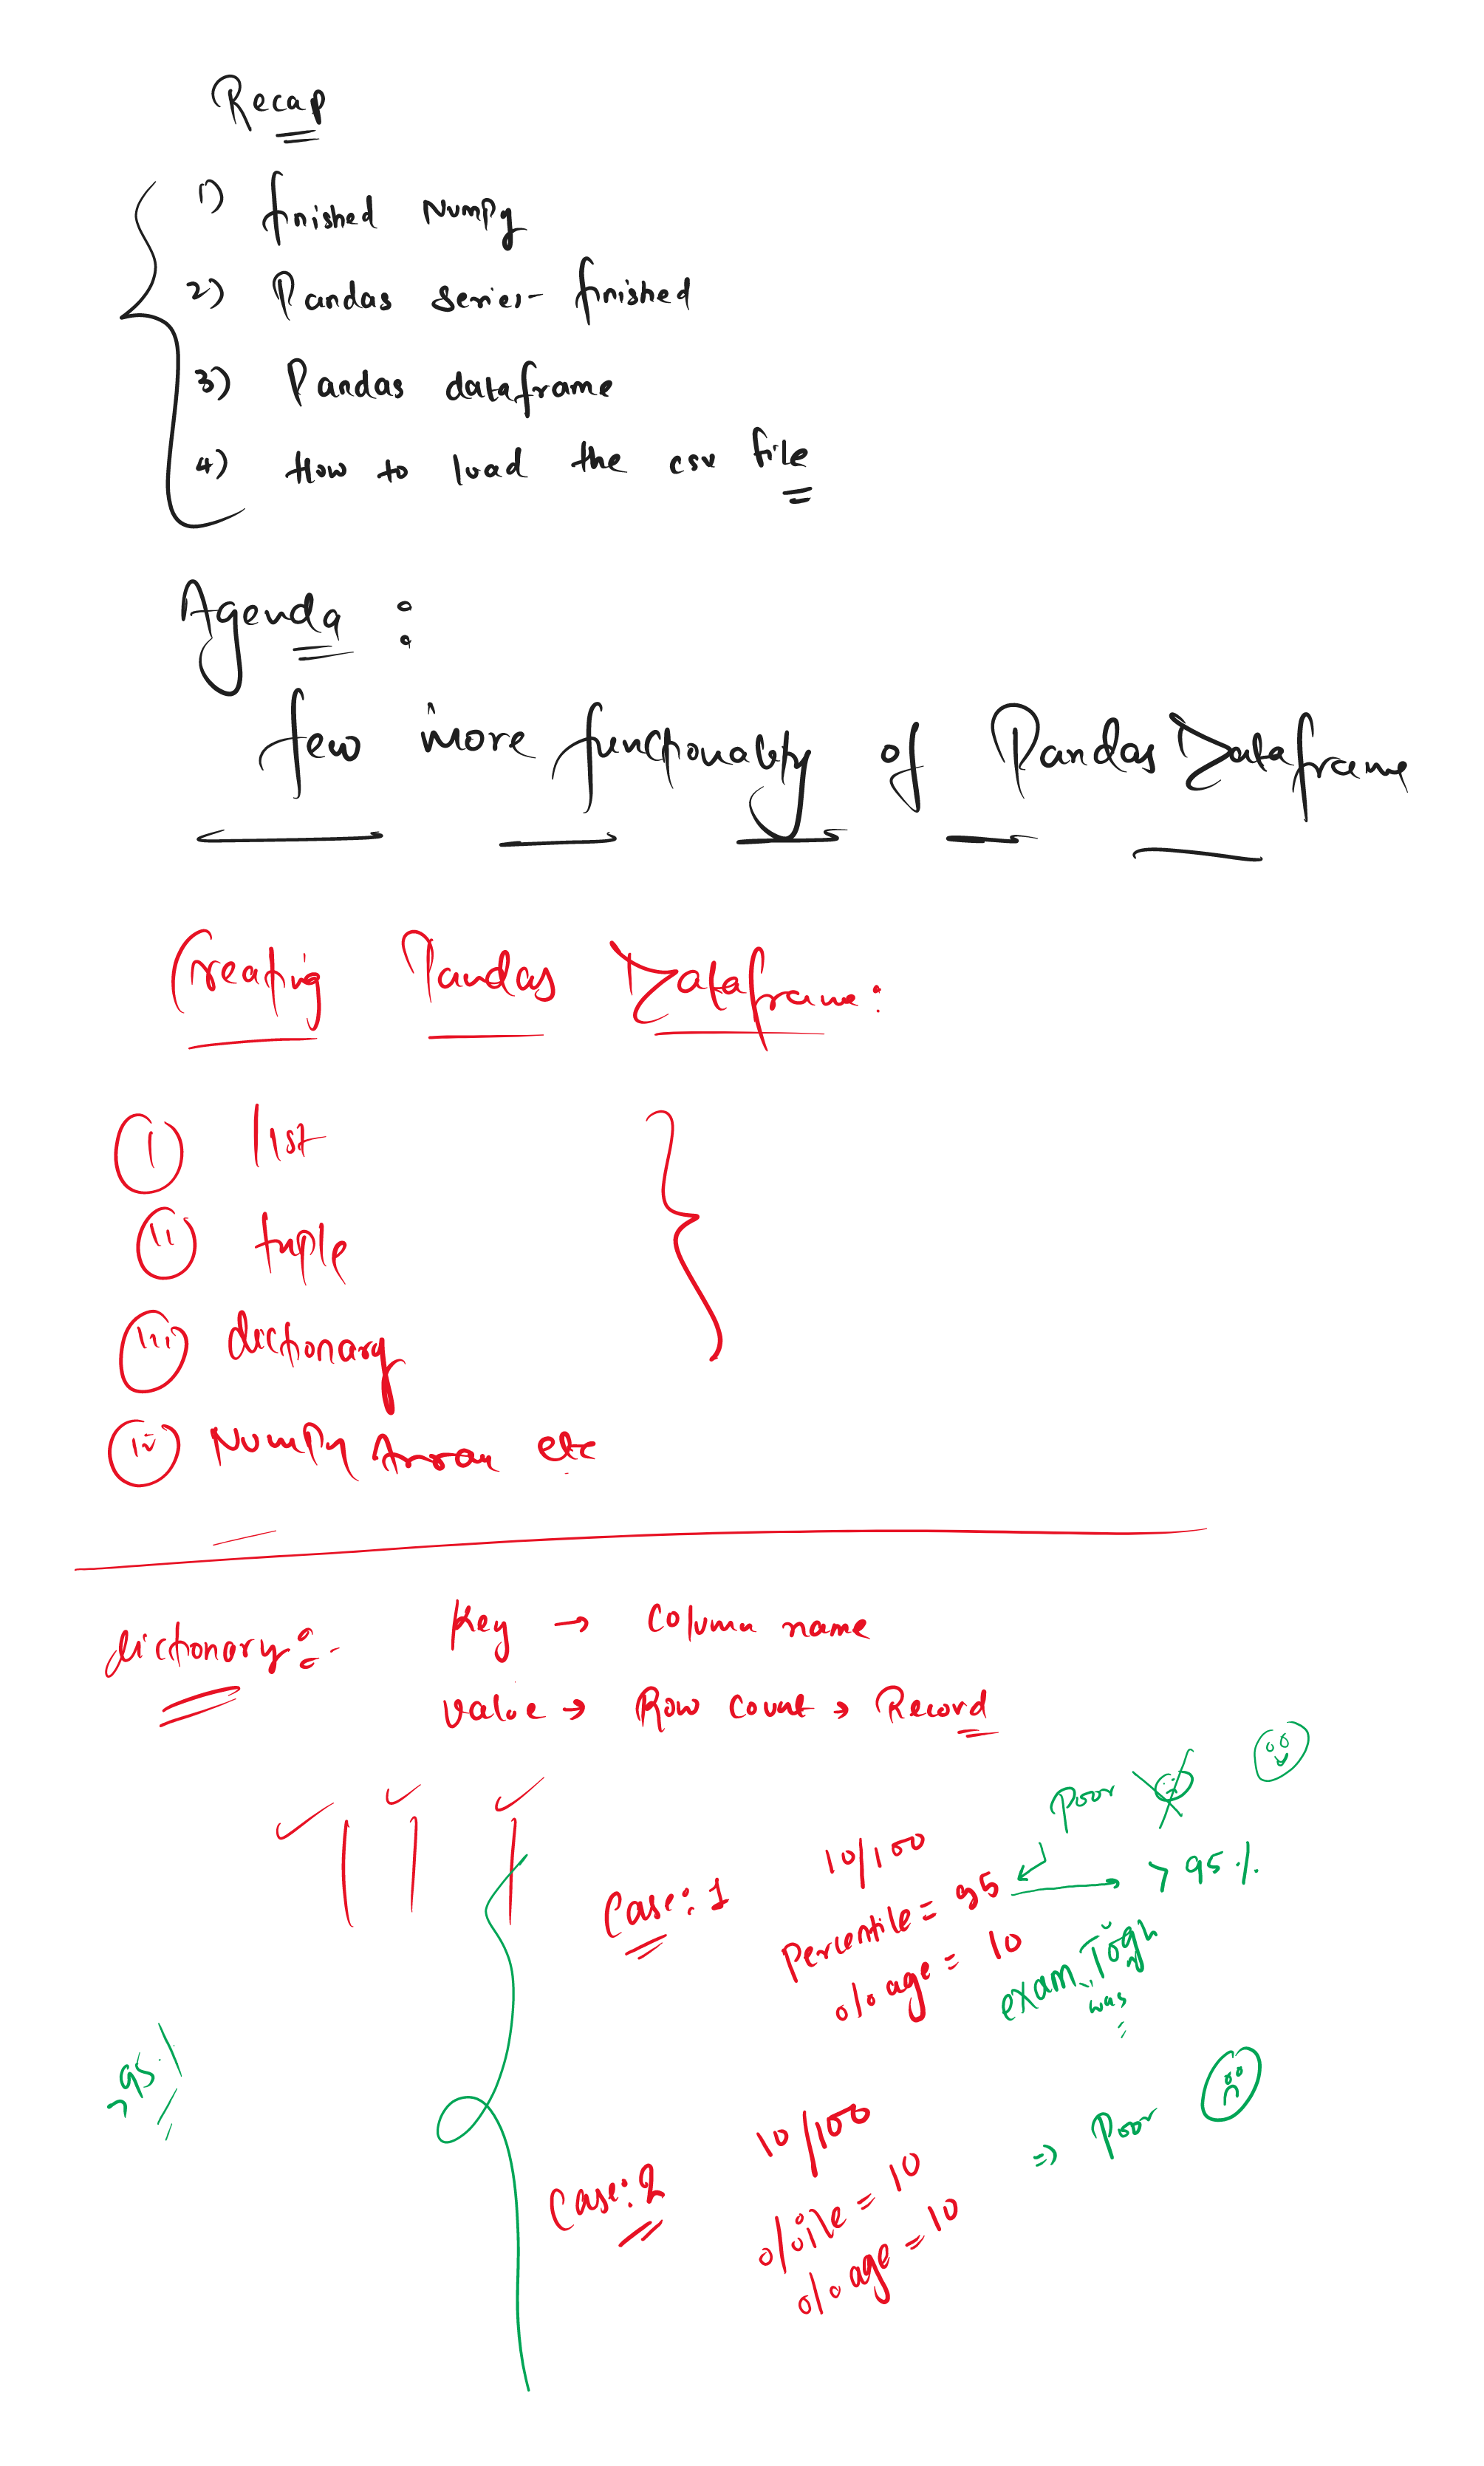 Recap
1) finished Numpy
2) Pandas series finished
3) Pandas dataframe
4) How to load the csv file
Agenda :
few more functionality of Pandas Dataframe
Creating Pandas Dataframe:
i list
ii tuple
iii dictionary
iv NumPy Array etc
dictionory :-
Key → Column name
value → Row count → Record
Poor
10/100
Case:1
Percentile = 95 → > 95%
%age = 10
exam Togh
was
>95%
10/100
⇒ Poor
Case:2
%ile = 10
%age = 10